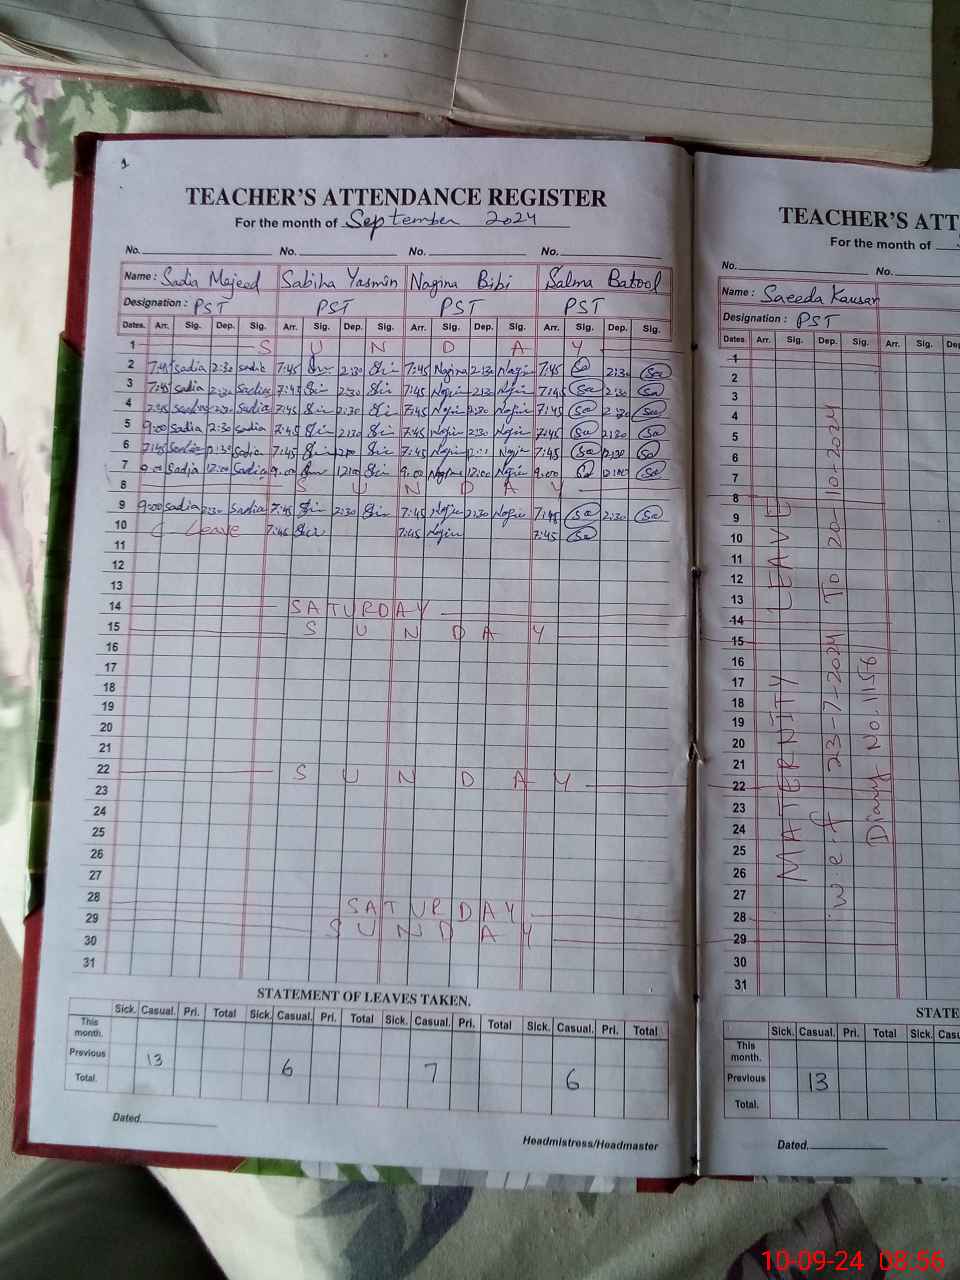 1
TEACHER'S ATTENDANCE REGISTER
For the month of September 2024
No. No. No. No.
Name : Sadia Majeed Sabiha Yasmin Nagina Bibi Salma Batool
Designation : PST PST PST PST
Dates. Arr. Sig. Dep. Sig. Arr. Sig. Dep. Sig. Arr. Sig. Dep. Sig. Arr. Sig. Dep. Sig.
1 S U N D A Y
2 7:45 sadia 2:30 sadia 7:45 2:30 7:45 Nagina 2:30 Nagin 7:45 2:30 Sa
3 7:45 sadia 2:30 Sadia 7:45 2:30 7:45 Nagin 2:30 Nagin 7:45 Sa 2:30 Sa
4 7:45 sadia 2:30 Sadia 7:45 2:30 7:45 Nagin 2:30 Nagin 7:45 Sa 2:30 Sa
5 9:00 sadia 2:30 sadia 7:45 2:30 7:45 Nagin 2:30 Nagin 7:45 Sa 2:30 Sa
6 7:45 Sadia 7:45 7:45 Nagin Nagin 7:45 Sa Sa
7 Sadia 12:00 Sadia 9:00 12:00 9:00 Nagina 12:00 Nagin 9:00 12:00 Sa
8 S U N D A Y
9 9:00 sadia 2:30 Sadia 7:45 2:30 7:45 Nagin 2:30 Nagin 7:45 Sa 2:30 Sa
10 C Leave 7:45 7:45 Nagin 7:45 Sa
11
12
13
14 SATURDAY
15 S U N D A Y
16
17
18
19
20
21
22 S U N D A Y
23
24
25
26
27
28 SATURDAY
29 S U N D A Y
30
31
STATEMENT OF LEAVES TAKEN.
Sick. Casual. Pri. Total Sick. Casual. Pri. Total Sick. Casual. Pri. Total Sick. Casual. Pri. Total
This month.
Previous 13 6 7 6
Total.
Dated.
Headmistress/Headmaster
TEACHER'S ATT
For the month of
No. No.
Name : Saeeda Kausar
Designation : PST
Dates. Arr. Sig. Dep. Sig. Arr. Sig. Dep
1
2
3
4
5
6
7
8
9
10
11
12
13
14
15
16
17
18
19
20
21
22
23
24
25
26
27
28
29
30
31
MATERNITY LEAVE
w.e.f 23-7-2024 To 20-10-2024
Diary No.1158
STATE
Sick. Casual. Pri. Total Sick. Casu
This month.
Previous 13
Total.
Dated.
10-09-24 08:56